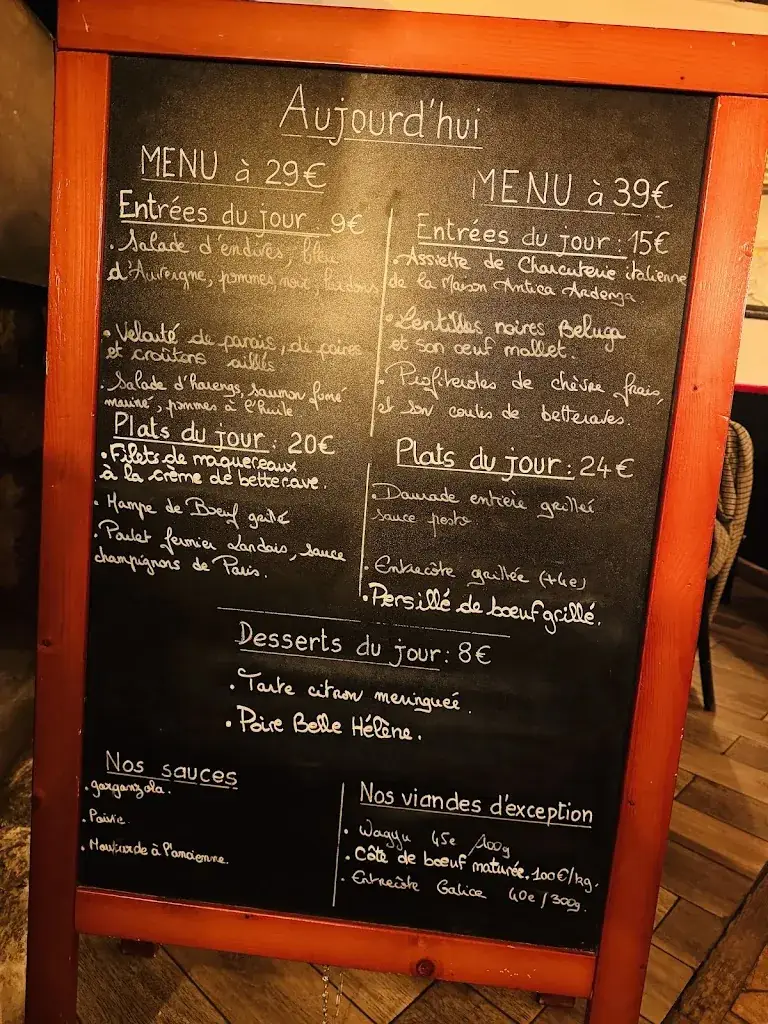 Aujourd'hui
MENU à 29€
Entrées du jour 9€
• Salade d'endives, bleu
d'Auvergne, pommes, noix, lardons
• Velouté de panais, de poires
et croûtons aillés
• Salade d'harengs, saumon fumé
mariné, pommes à l'huile
Plats du jour : 20€
• Filets de maquereaux
à la crème de betterave.
• Hampe de Bœuf grillé
• Poulet fermier Landais, sauce
champignons de Paris.
MENU à 39€
Entrées du jour : 15€
Assiette de Charcuterie italienne
de la Maison Antica Ardenga
• Lentilles noires Beluga
et son œuf mollet.
• Profiteroles de chèvre frais,
et son coulis de betteraves.
Plats du jour : 24€
• Daurade entière grillée
sauce pesto
• Entrecôte grillée (+4e)
• Persillé de bœuf grillé.
Desserts du jour : 8€
• Tarte citron meringuée.
• Poire Belle Hélène.
Nos sauces
• gorgonzola.
• Poivre.
• Moutarde à l'ancienne.
Nos viandes d'exception
• Wagyu 45e /100g
• Côte de bœuf maturée. 100€/kg.
• Entrecôte Galice 40e / 300g.